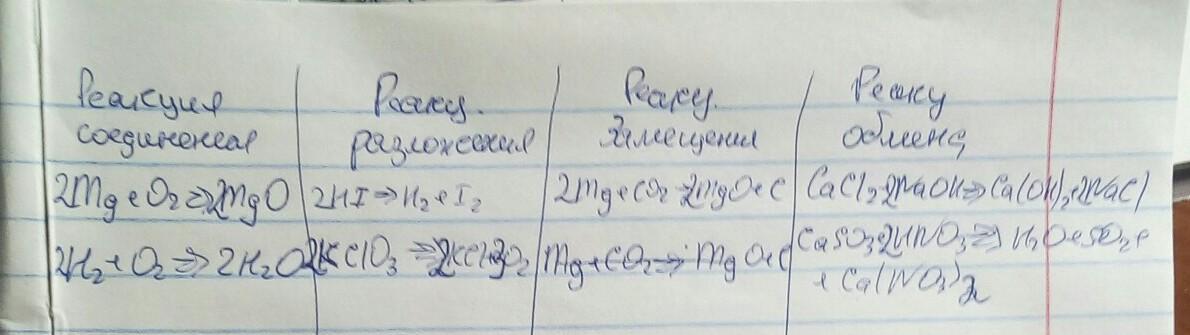 Реакция Реакц. Реакц. Реакц
соединения разложения замещения обмена
2Mg+O₂⇒2MgO 2HI⇒H₂+I₂ 2Mg+CO₂⇒2MgO+C CaCl₂+2NaOH⇒Ca(OH)₂+2NaCl
2H₂+O₂⇒2H₂O 2KClO₃⇒2KCl+3O₂ Mg+CO₂⇒MgO+C CaSO₃+2HNO₃⇒H₂O+SO₂+
+Ca(NO₃)₂